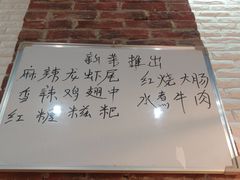 新菜推出
麻辣龙虾尾 红烧大肠
香辣鸡翅中 水煮牛肉
红糖糍粑